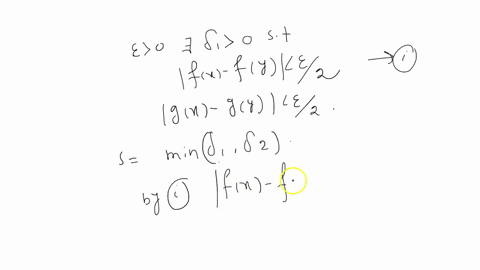 ε>0 ∃ δ₁>0 s.t
|f(x)-f(y)|<ε/2 → (i)
|g(x)-g(y)|<ε/2.
s= min(δ₁, δ2).
by (i) |f(x)-f